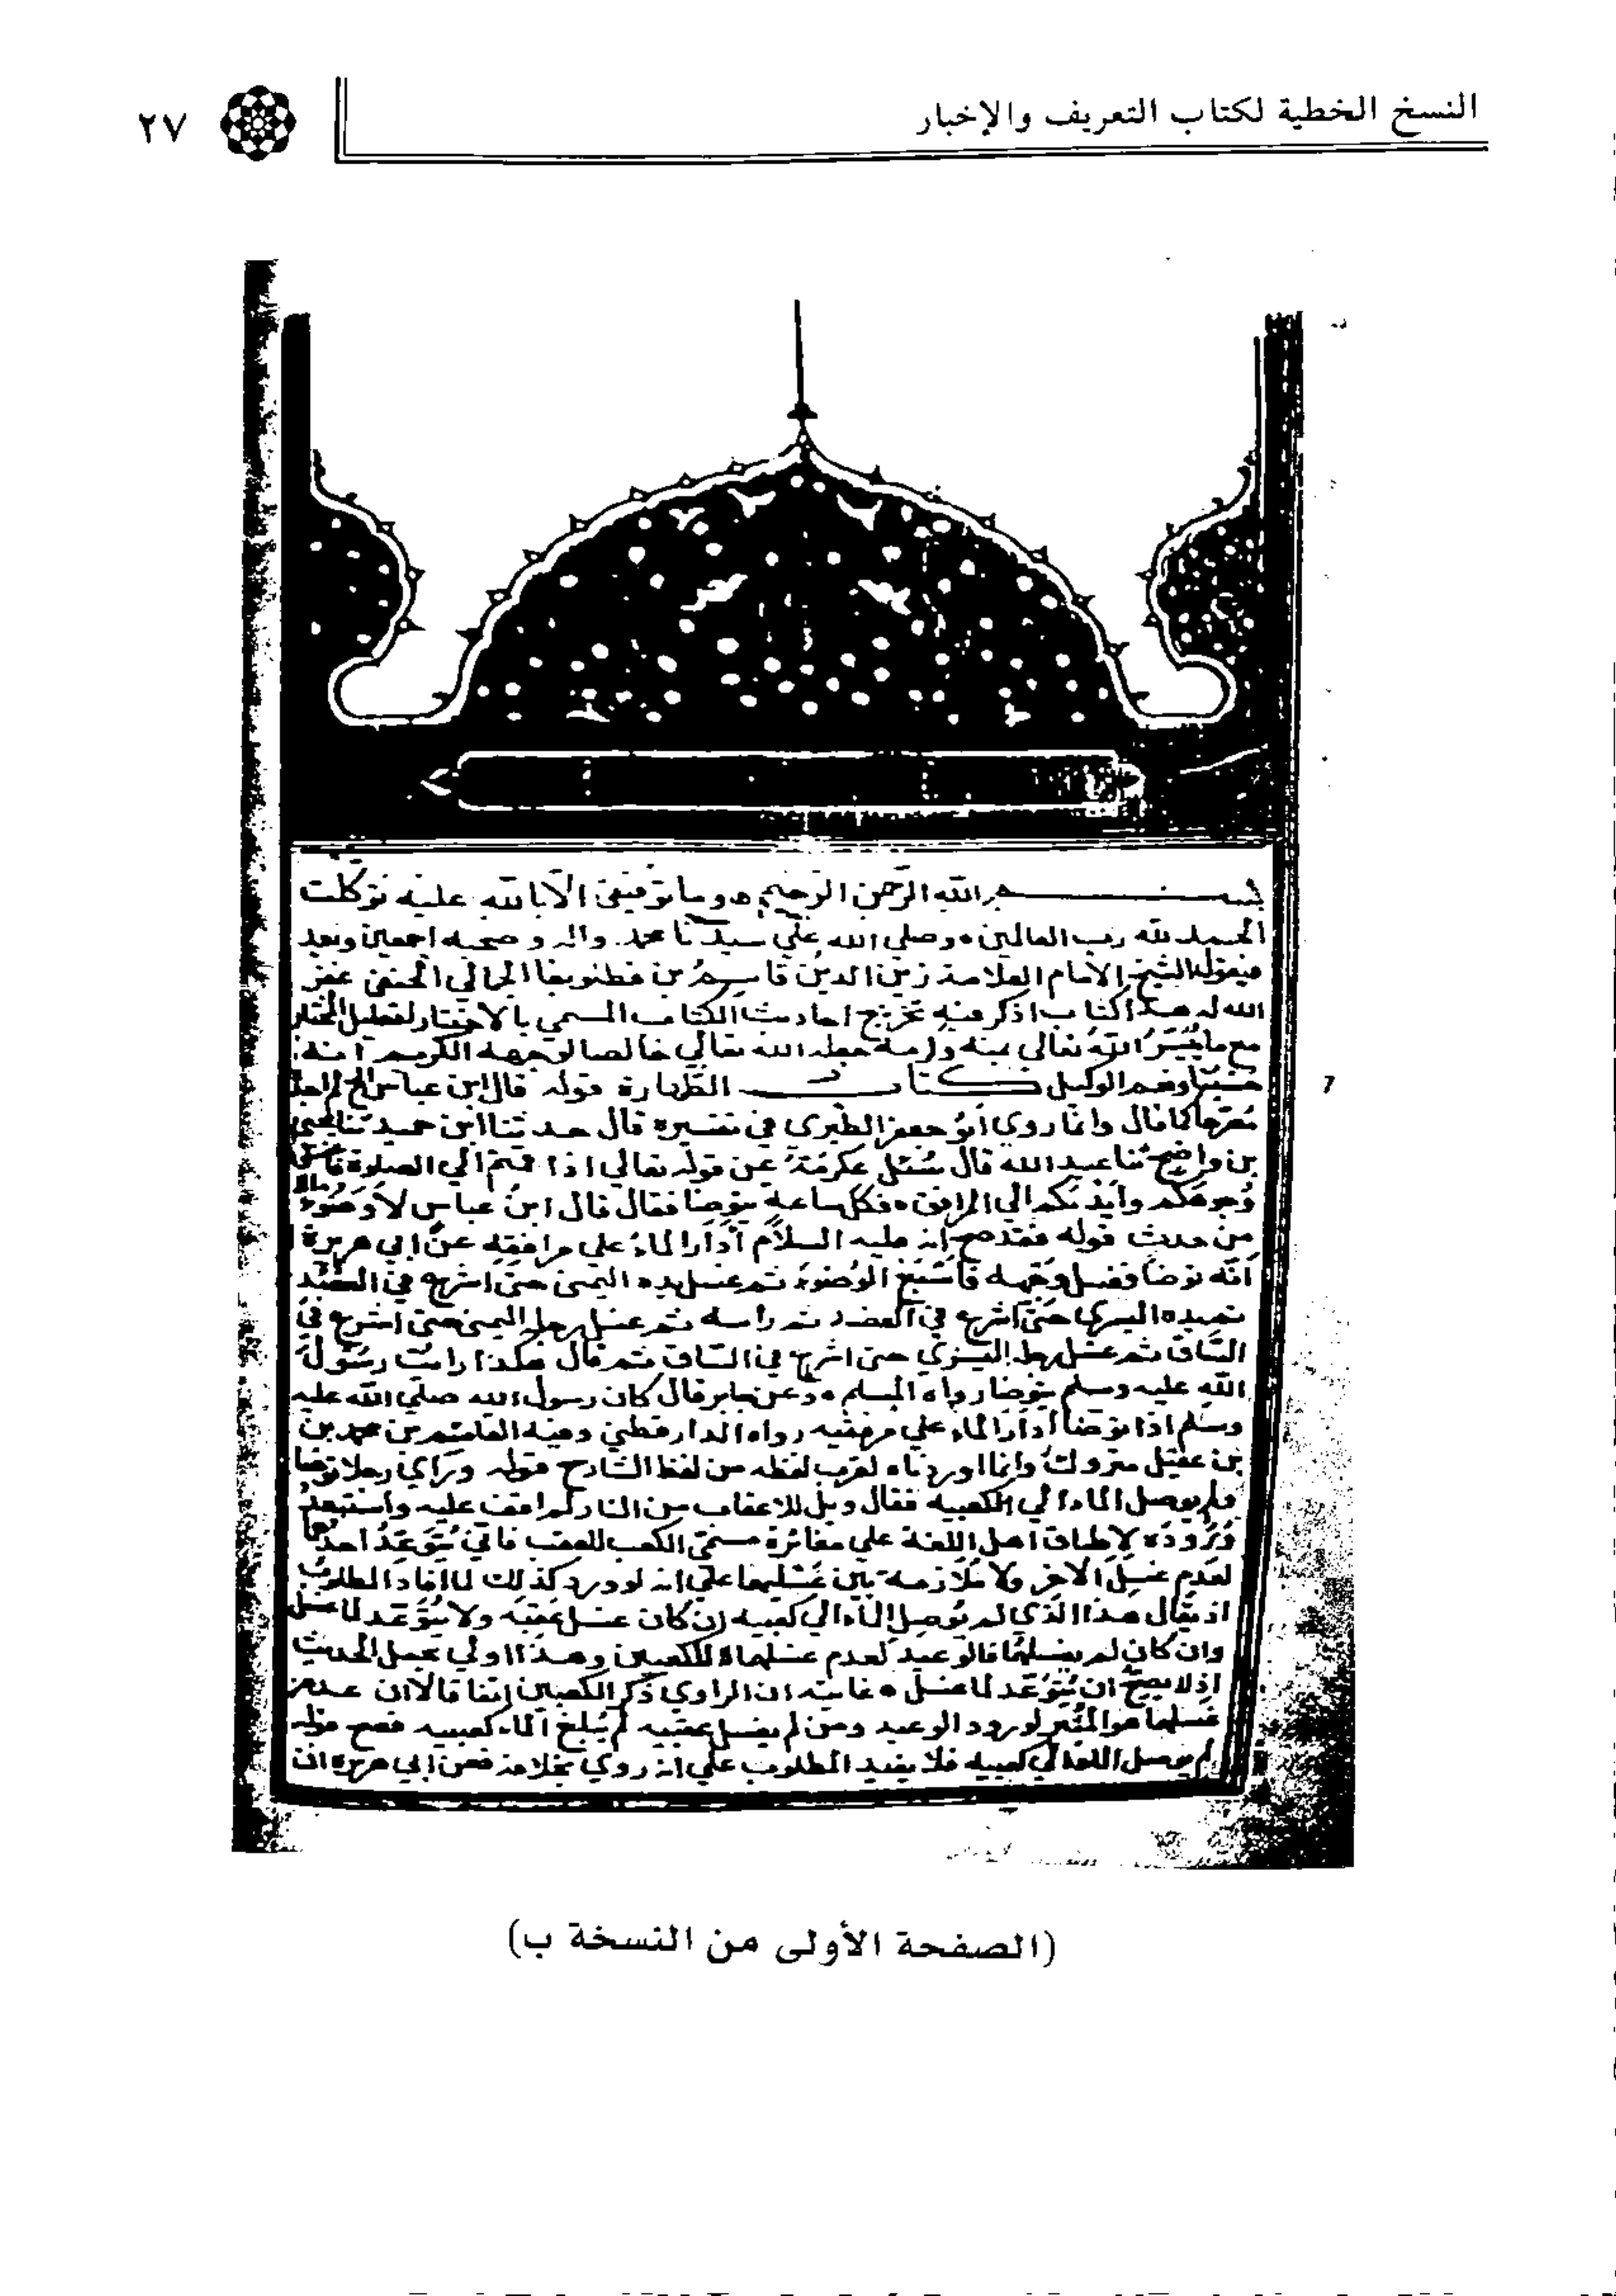 النسخ الخطية لكتاب التعريف والإخبار
٢٧
بسم الله الرحمن الرحيم وما توفيقي الا بالله عليه توكلت
الحمد لله رب العالمين وصلى الله علي سيدنا محمد واله وصحبه اجمعين وبعد
فيقول الشيخ الامام العلامة زين الدين قاسم بن قطلوبغا الجمالي الحنفي غفر
الله له هذا كتاب اذكر فيه تخريج احاديث الكتاب المسمي بالاختيار لتعليل المختار
مع ما ييسر الله تعالي بمنه وكرمه جعله الله تعالي خالصا لوجهه الكريم انه
حسبنا ونعم الوكيل كتاب الطهارة قوله قال ابن عباس الخ لم اجد
مخرجا كما قال وانما روي ابو جعفر الطبري في تفسيره قال حدثنا ابن حميد ثنا يحيى
بن واضح ثنا عبيد الله قال سئل عكرمة عن قوله تعالي اذا قمتم الي الصلوة فاغسلوا
وجوهكم وايديكم الي المرافق فكل ساعة يتوضا فقال قال ابن عباس لا وضوء الا
من حدث قوله فقد صح انه عليه السلام أدار الماء علي مرافقه عن ابي هريرة
انه توضا فغسل وجهه فاسبغ الوضوء ثم غسل يده اليمنى حتى اشرع في العضد
ثم يده اليسري حتى اشرع في العضد ثم راسه ثم غسل رجله اليمنى حتى اشرع في
الساق ثم غسل رجله اليسري حتى اشرع في الساق ثم قال هكذا رايت رسول
الله عليه وسلم يتوضا رواه المسلم وعن جابر قال كان رسول الله صلي الله عليه
وسلم اذا توضا أدار الماء علي مرفقيه رواه الدارقطني وفيه القاسم بن محمد بن
بن عقيل متروك وانما اوردناه لقرب لفظه من لفظ الشارح قوله وراي رجلا توضا
ولم يوصل الماء الي كعبيه فقال ويل للاعقاب من النار لم اقف عليه واستبعد
وروده لاطباق اهل اللغة علي مغائرة مسمى الكعب للعقب فاني يتوعد احدهما
لعدم غسل الاخر ولا ملازمة بين غسليهما علي انه لو ورد كذلك لما افاد المطلوب
اذ يقال هذا الذي لم يوصل الماء الي كعبيه ان كان غسل عقبه ولا يتوعد لما غسل
وان كان لم يغسلهما فالوعيد لعدم غسلهما لا للكعبين وهذا اولي بحمل الحديث
اذ لا يصح ان يتوعد لما غسل غايته ان الراوي ذكر الكعبين اتفاقا لان عدم
غسلهما هو المثير لورود الوعيد ومن لم يغسل عقبيه لم يبلغ الماء كعبيه فصح قوله
لم يوصل الماء الي كعبيه فلا يفيد المطلوب علي انه روي بخلافه فعن ابي هريرة ان
(الصفحة الأولى من النسخة ب)